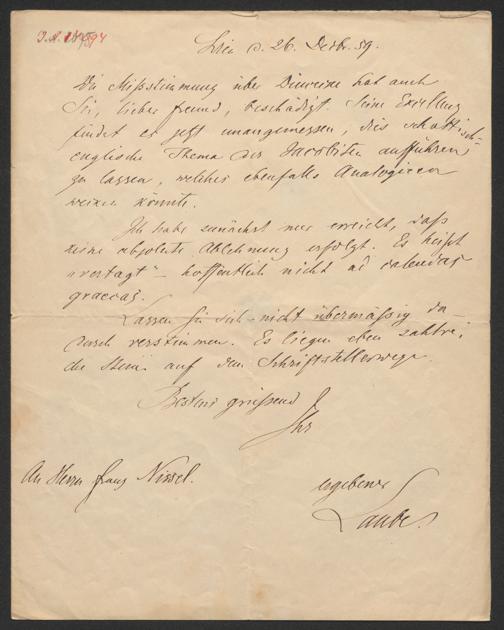 Wien d. 26. Dezbr. 59.
Die Missstimmung über hat auch
Sie, lieber Freund, beschädigt. Seine Exzellenz
findet es jetzt unangemessen, dies schottisch-
englische Thema der Jacobiten aufführen
zu lassen, welches ebenfalls Analogieen
weisen könnte.
Ich habe zunächst nur erreicht, daß
keine absolute Ablehnung erfolgt. Es heißt
„vertagt“ – hoffentlich nicht ad calendas
graecas.
Lassen Sie sich nicht übermässig da-
durch verstimmen. Es liegen eben zahlrei-
che Steine auf dem Schriftstellerwege.
Bestens grüssend
Ihr
An Herrn Franz Nissel.
ergebener
Laube.